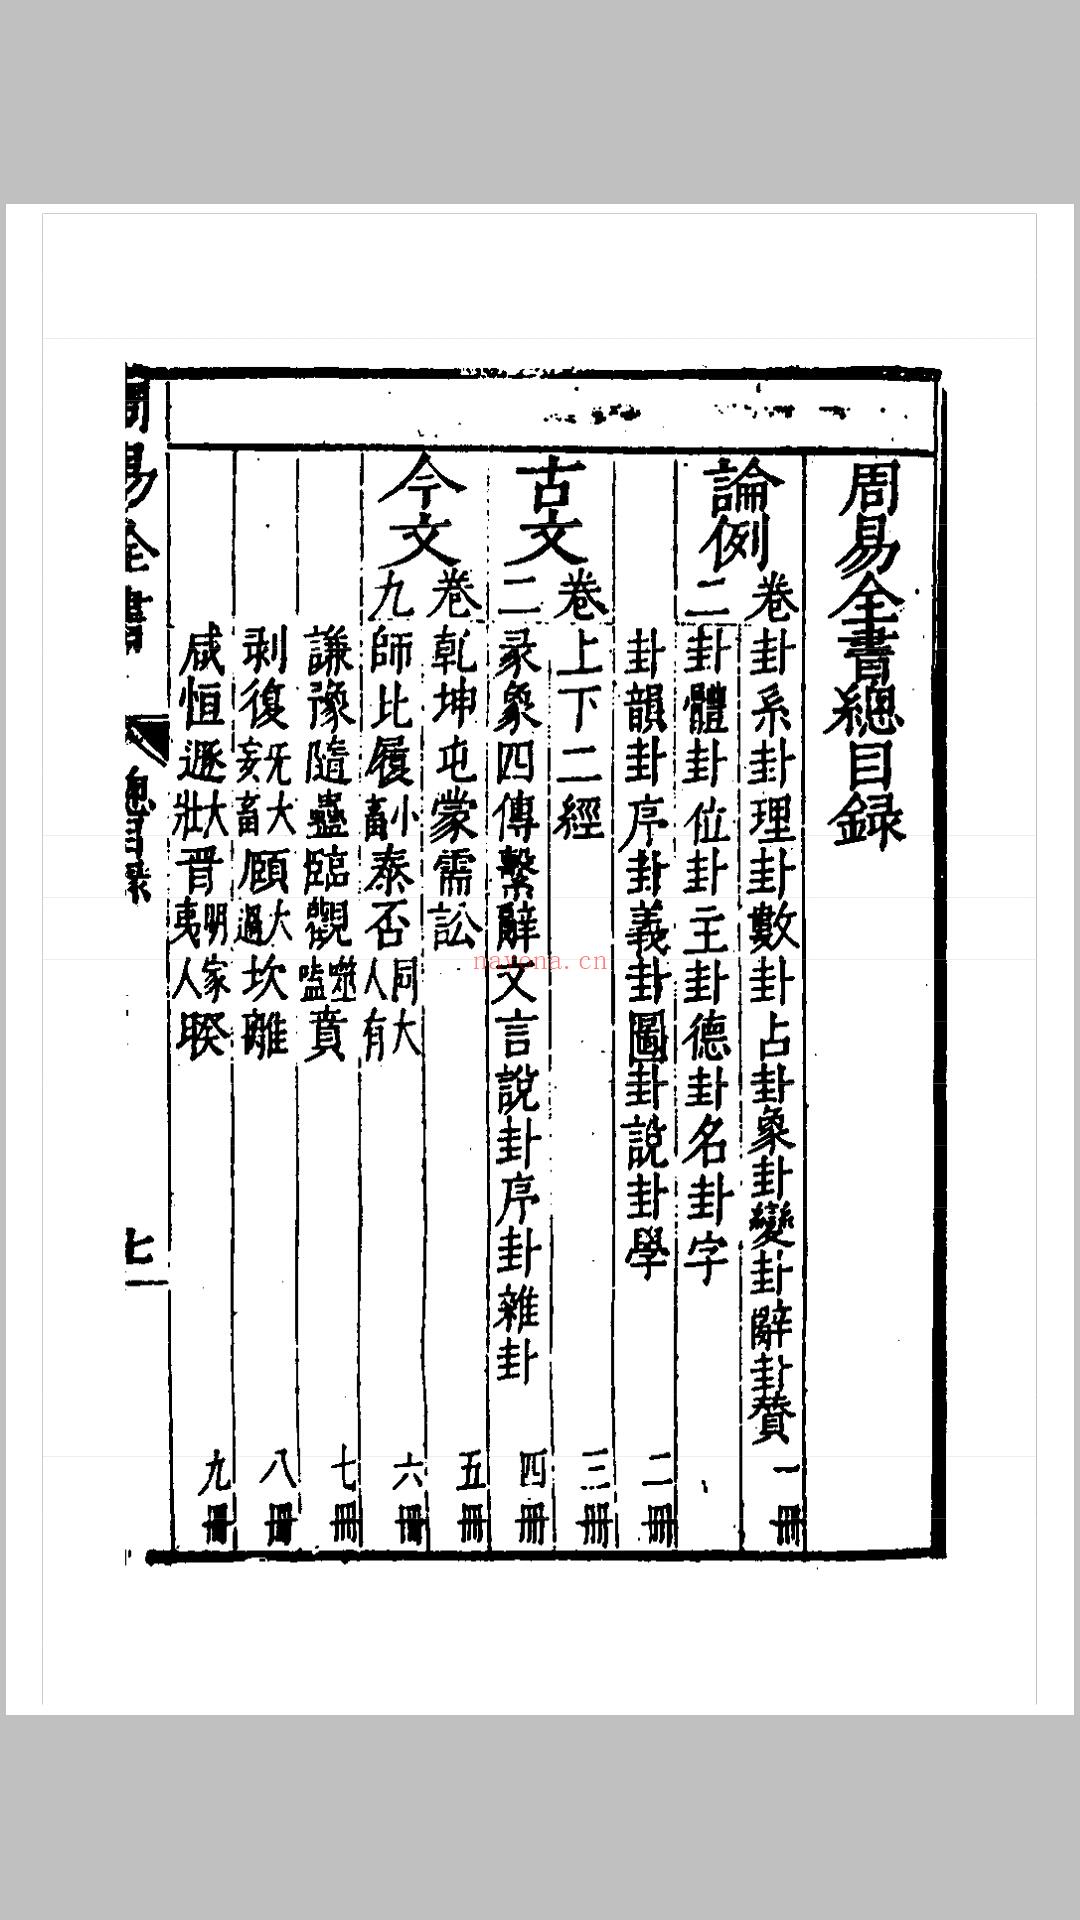 周易全書總目録
論例
卷二
卦系卦理卦數卦占卦象卦變卦辭卦贊 一冊
卦體卦位卦主卦德卦名卦字
卦韻卦序卦義卦圖卦説卦學 二冊
古文
卷二
上下二經 三冊
彖象四傳繫辭文言説卦序卦雜卦 四冊
今文
卷九
乾坤屯蒙需訟 五冊
師比履小畜泰否同人大有 六冊
謙豫隨蠱臨觀噬嗑賁 七冊
剥復无妄大畜頤大過坎離 八冊
咸恒遯大壯晋明夷家人睽 九冊
周易全書
總目録
七
nayona.cn